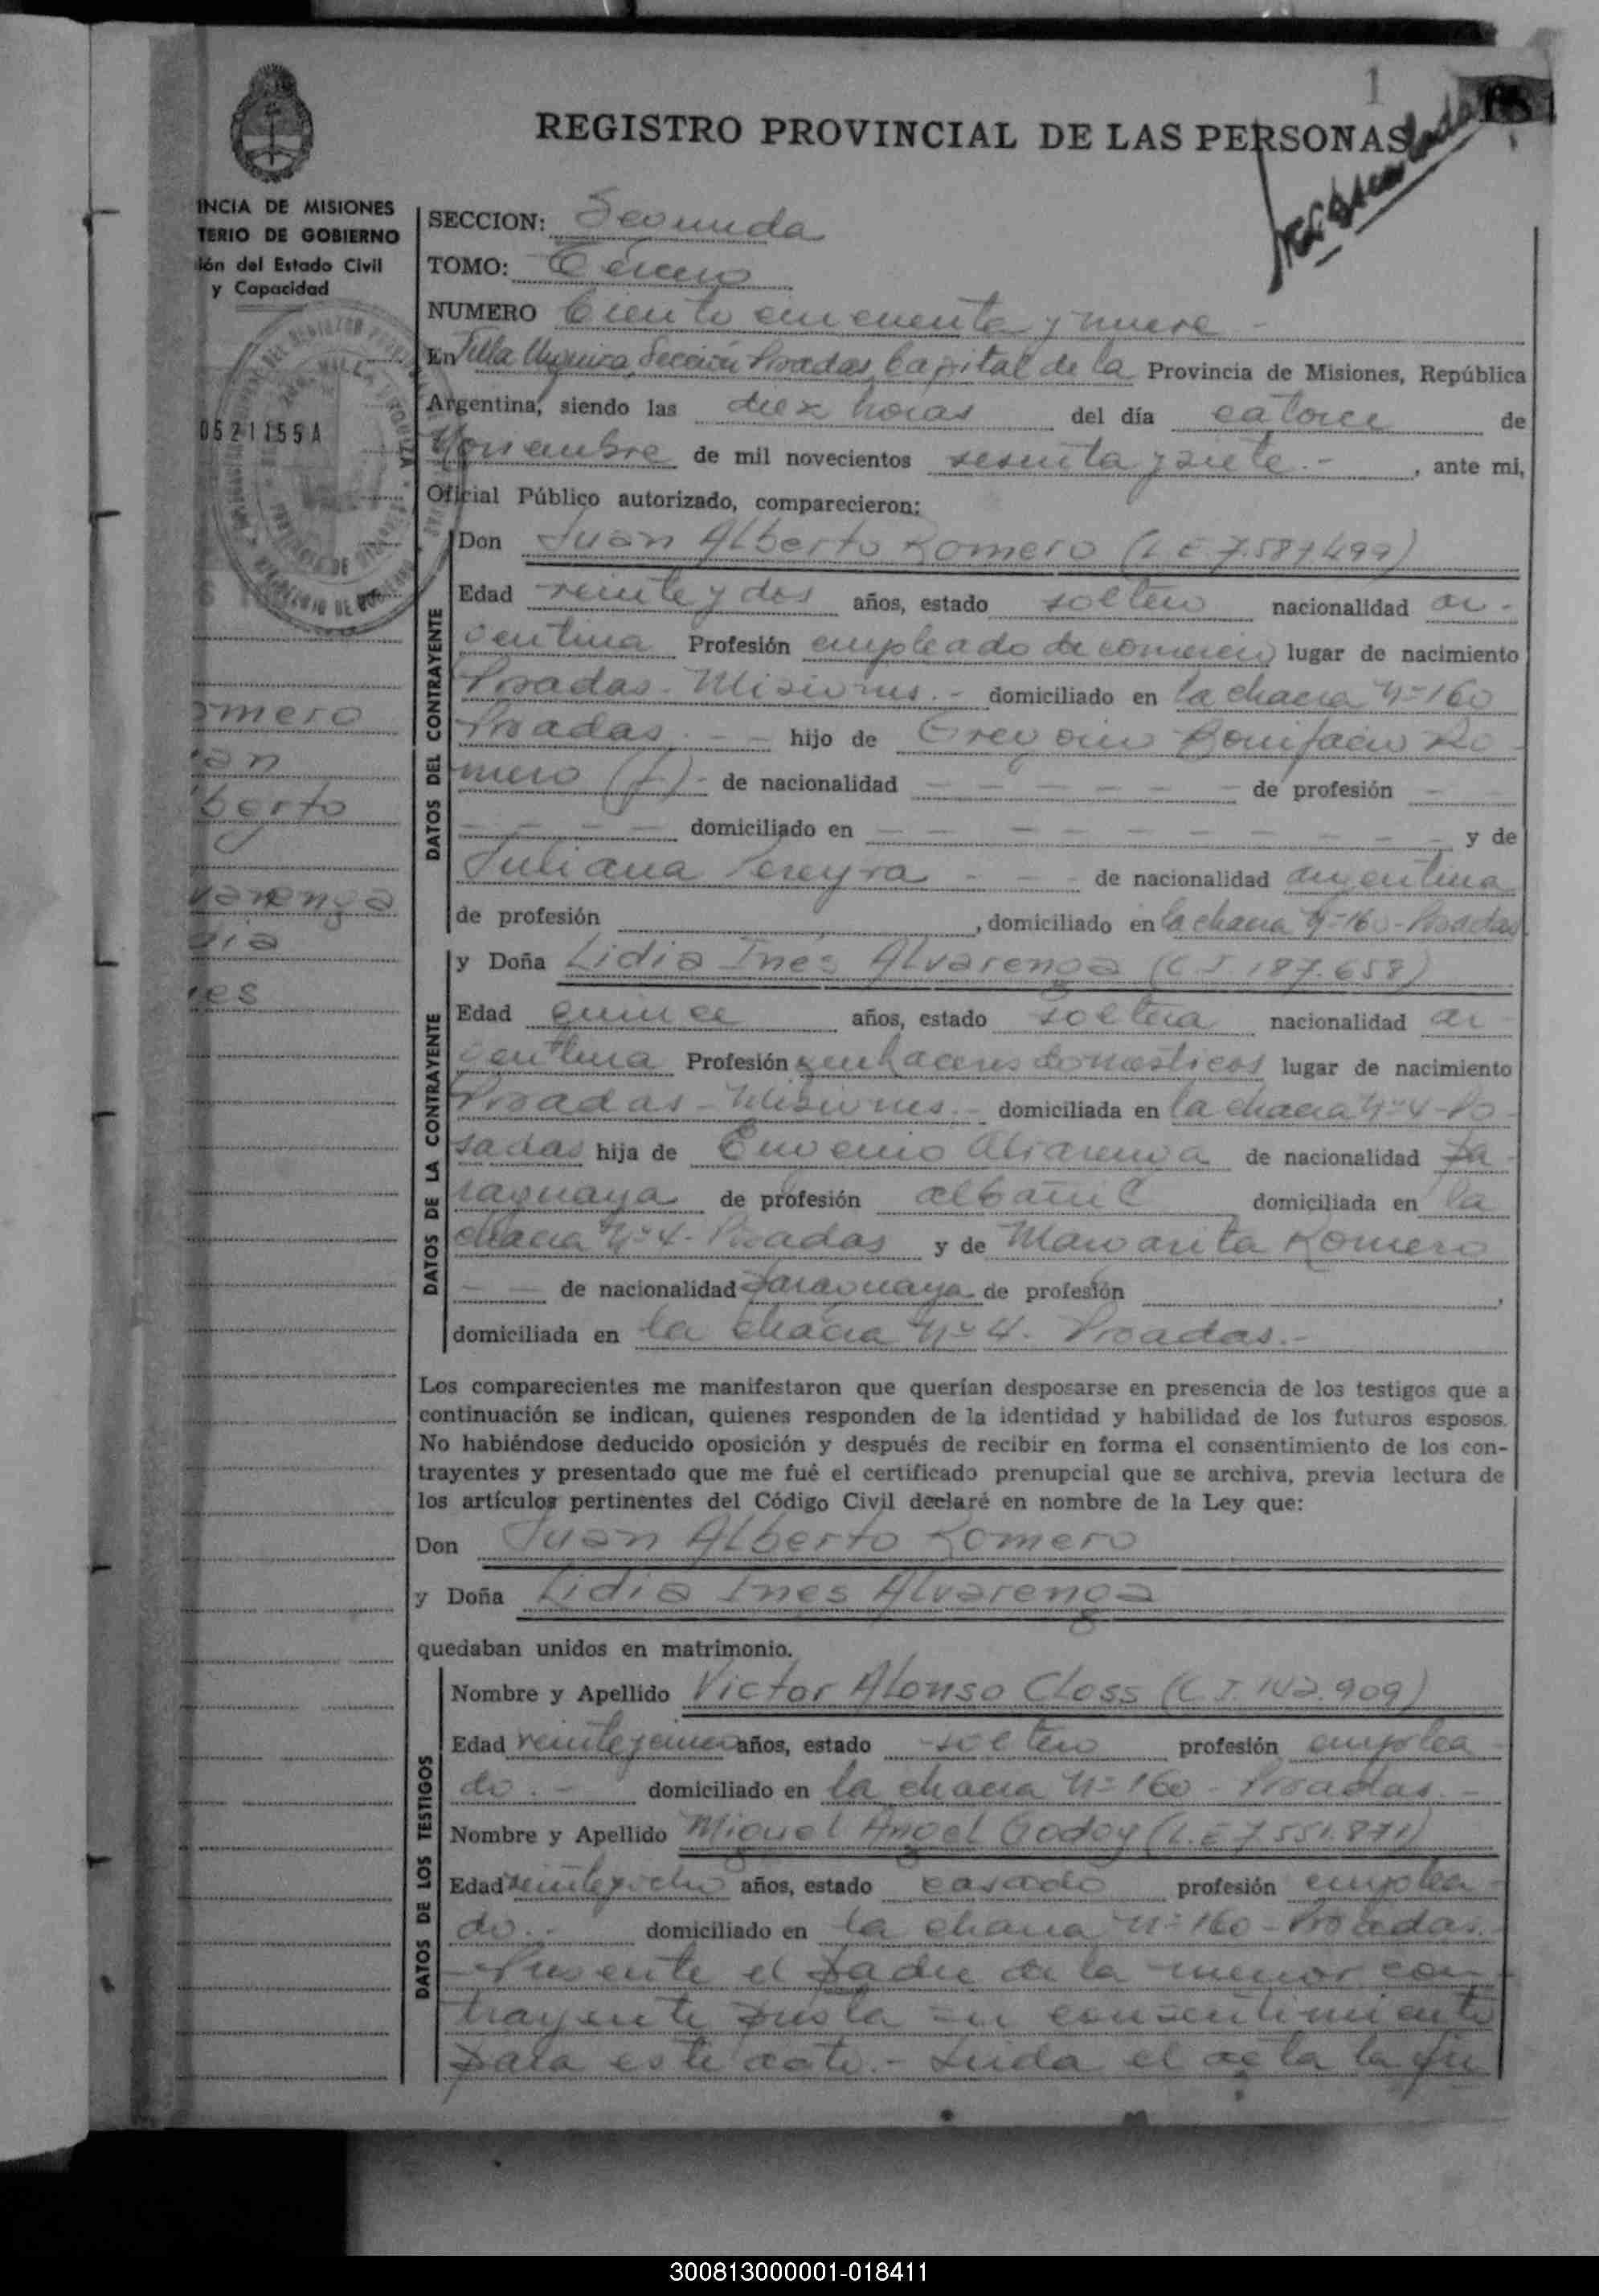 1
REGISTRO PROVINCIAL DE LAS PERSONAS
INCIA DE MISIONES
TERIO DE GOBIERNO
ión del Estado Civil
y Capacidad
0521155A
omero
an
berto
varenga
dia
es
SECCION: Segunda
TOMO: Tercero
NUMERO Ciento cincuenta y nueve -
En Villa Urquiza, Sección Posadas, Capital de la Provincia de Misiones, República
Argentina, siendo las diez horas del día catorce de
Noviembre de mil novecientos sesenta y siete.- , ante mi,
Oficial Público autorizado, comparecieron:
DATOS DEL CONTRAYENTE
Don Juan Alberto Romero (L E 7.587.499)
Edad veinte y dos años, estado soltero nacionalidad ar-
gentina Profesión empleado de comercio lugar de nacimiento
Posadas - Misiones.- domiciliado en la chacra Nº 160
Posadas. - - hijo de Gregorio Bonifacio Ro-
mero (f)- de nacionalidad - - - - - - de profesión - -
- - - - - domiciliado en - - - - - - - - - - y de
Juliana Pereyra - - - de nacionalidad argentina
de profesión , domiciliado en la chacra Nº 160 - Posadas
DATOS DE LA CONTRAYENTE
y Doña Lidia Inés Alvarenga (C I. 187.658)
Edad quince años, estado soltera nacionalidad ar-
gentina Profesión quehaceres domesticos lugar de nacimiento
Posadas - Misiones.- domiciliada en la chacra Nº 4 - Po-
sadas hija de Eugenio Alvarenga de nacionalidad pa-
raguaya de profesión albañil domiciliada en la
chacra Nº 4 - Posadas y de Margarita Romero
- - de nacionalidad paraguaya de profesión ,
domiciliada en la chacra Nº 4. Posadas.-
Los comparecientes me manifestaron que querían desposarse en presencia de los testigos que a
continuación se indican, quienes responden de la identidad y habilidad de los futuros esposos.
No habiéndose deducido oposición y después de recibir en forma el consentimiento de los con-
trayentes y presentado que me fué el certificado prenupcial que se archiva, previa lectura de
los artículos pertinentes del Código Civil declaré en nombre de la Ley que:
Don Juan Alberto Romero
y Doña Lidia Inés Alvarenga
quedaban unidos en matrimonio.
DATOS DE LOS TESTIGOS
Nombre y Apellido Victor Alonso Closs (C I. 142.909)
Edad veinte y cinco años, estado soltero profesión emplea-
do.- domiciliado en la chacra Nº 160 - Posadas.-
Nombre y Apellido Miguel Angel Godoy (L.E 7.551.871)
Edad veinte y ocho años, estado casado profesión emplea-
do.- domiciliado en la chacra Nº 160 - Posadas.-
- Presente el padre de la menor con-
trayente presta su consentimiento
para este acto.- Leida el acta la fir
300813000001-018411